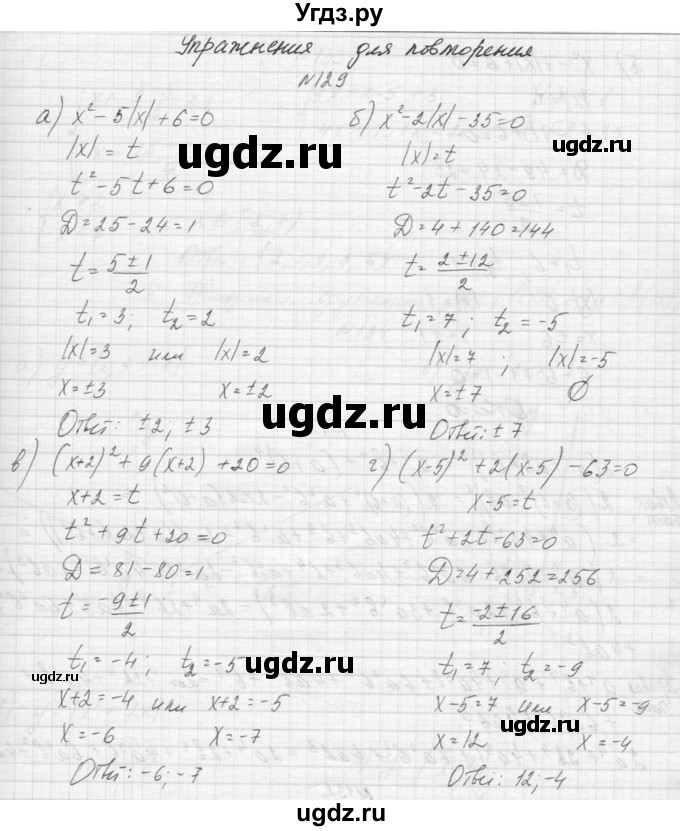 Угдз.ру
Упражнения для повторения
№129
а) x² - 5|x| + 6 = 0
|x| = t
t² - 5t + 6 = 0
D = 25 - 24 = 1
t = (5 ± 1)/2
t₁ = 3; t₂ = 2
|x| = 3 или |x| = 2
x = ±3 x = ±2
Ответ: ±2; ±3
б) x² - 2|x| - 35 = 0
|x| = t
t² - 2t - 35 = 0
D = 4 + 140 = 144
t = (2 ± 12)/2
t₁ = 7; t₂ = -5
|x| = 7; |x| = -5
x = ±7 ∅
Ответ: ±7
в) (x+2)² + 9(x+2) + 20 = 0
x+2 = t
t² + 9t + 20 = 0
D = 81 - 80 = 1
t = (-9 ± 1)/2
t₁ = -4; t₂ = -5
x+2 = -4 или x+2 = -5
x = -6 x = -7
Ответ: -6; -7
г) (x-5)² + 2(x-5) - 63 = 0
x-5 = t
t² + 2t - 63 = 0
D = 4 + 252 = 256
t = (-2 ± 16)/2
t₁ = 7; t₂ = -9
x-5 = 7 или x-5 = -9
x = 12 x = -4
Ответ: 12; -4
ugdz.ru
ugdz.ru
ugdz.ru
ugdz.ru
ugdz.ru
ugdz.ru
ugdz.ru